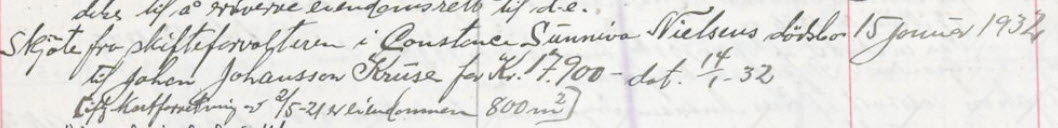 dets til å erhverve eiendomsrett til d.e.
Skjøte fra skifteforvalteren i Constance Sunniva Nielsens dødsbo 15 januar 1932
til Johan Johansson Kruse for Kr. 17.900 - dat. 14/1-32
[ifg. kartforretning av 2/5-21 er eiendommen 800 m²]